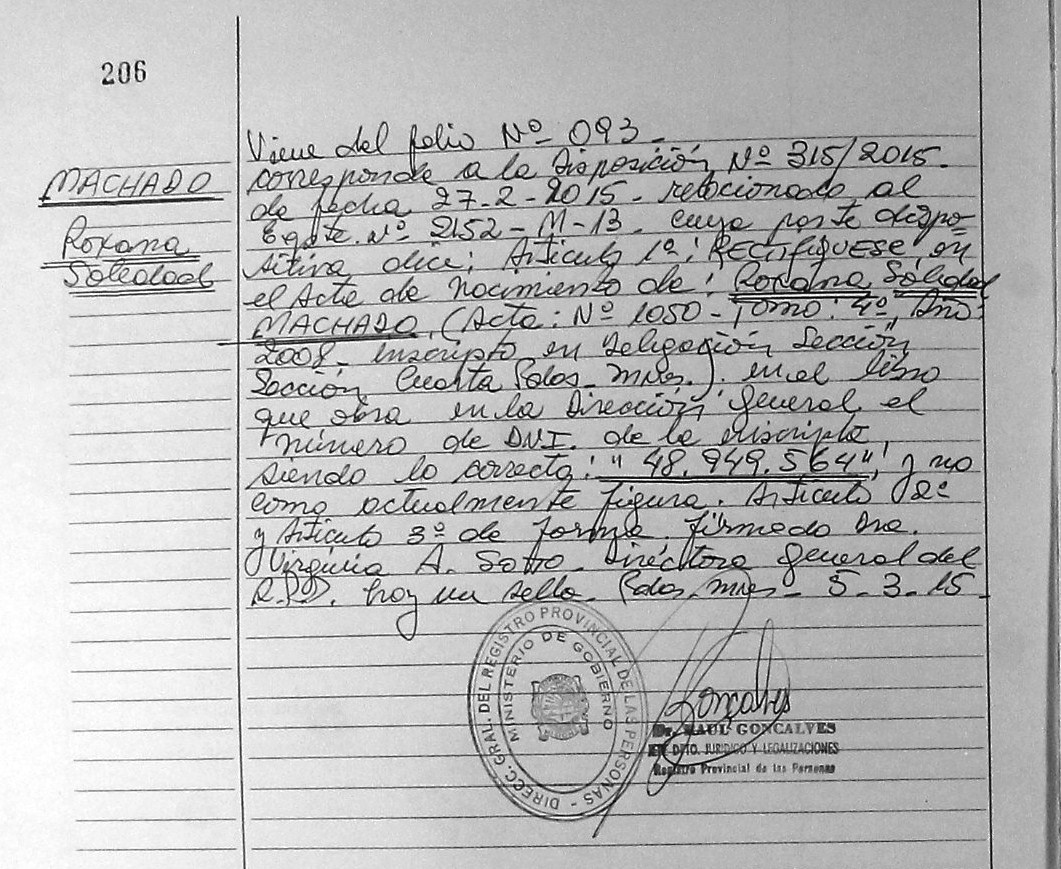 206
MACHADO
Roxana
Soledad
Viene del folio Nº 093.-
corresponde a la Disposición Nº 315/2015.
de fecha 27-2-2015. relacionado al
Expte. Nº 2152-M-13. cuya parte dispo-
sitiva dice: Artículo 1º: RECTIFIQUESE, en
el Acta de nacimiento de: Roxana Soledad
MACHADO, (Acta: Nº 1050- Tomo: 4º, Año:
2008. inscripto en Delegación Sección
Sección Cuarta Pdas. Mnes.). en el libro
que obra en la Dirección General, el
número de D.N.I. de la inscripta,
siendo lo correcto: "48.949.564", y no
como actualmente figura. Artículo 2º
y Artículo 3º de forma. firmado Dra.
Virginia A. Sotto. Directora General del
R.P.P. hay un sello. Pdas. Mnes- 5-3-15-
DIRECC. GRAL. DEL REGISTRO PROVINCIAL DE LAS PERSONAS -
MINISTERIO DE GOBIERNO
Gonçalves
Dr. RAUL GONCALVES
DPTO. JURIDICO Y LEGALIZACIONES
Registro Provincial de las Personas